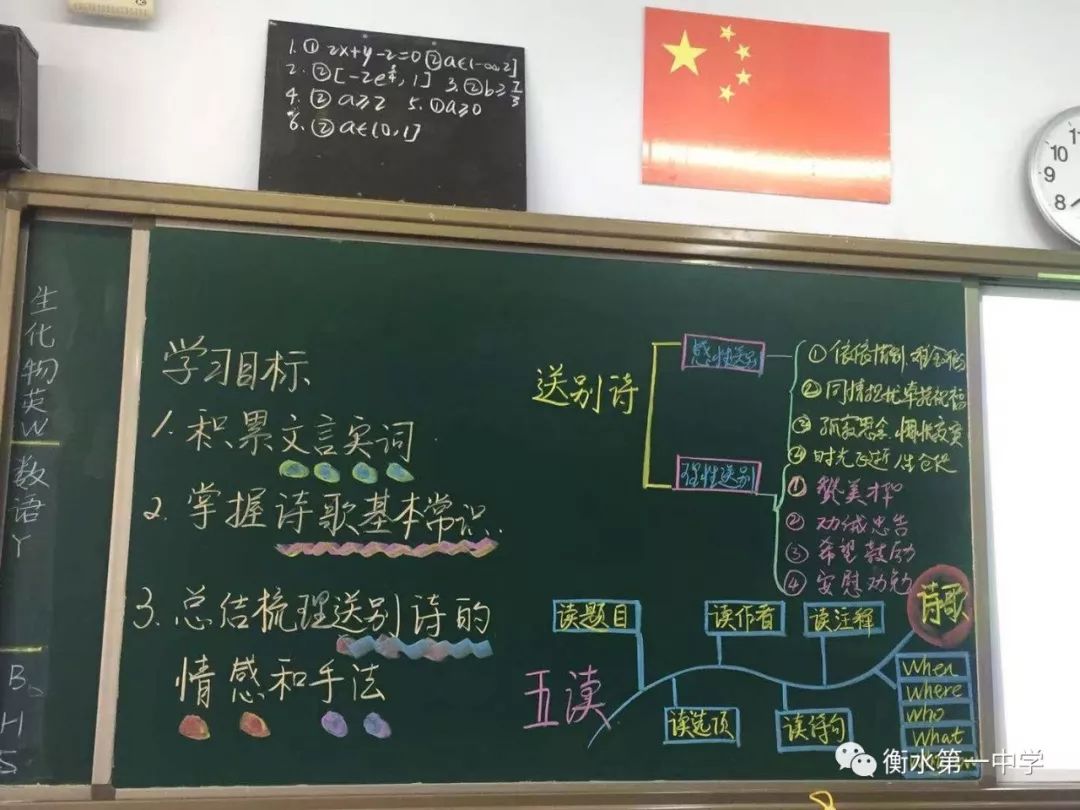 1. ① 2x+y-2=0 ② a∈(-∞,2]
4. ② a≥2 5. ① a≥0
6. ② a∈(0,1]
11
10
9
8
生化物英W
数语Y
B。
H
S
学习目标
1. 积累文言实词.
2. 掌握诗歌基本常识.
3. 总结梳理送别诗的
情感和手法
送别诗
感性送别
理性送别
① 依依惜别
② 同情担忧 祝福
④ 时光飞逝 人生
① 赞美
② 劝诫忠告
③ 希望鼓励
④ 安慰劝勉
五读
读题目
读选项
读作者
读诗句
读注释
诗歌
when
where
who
what
衡水第一中学